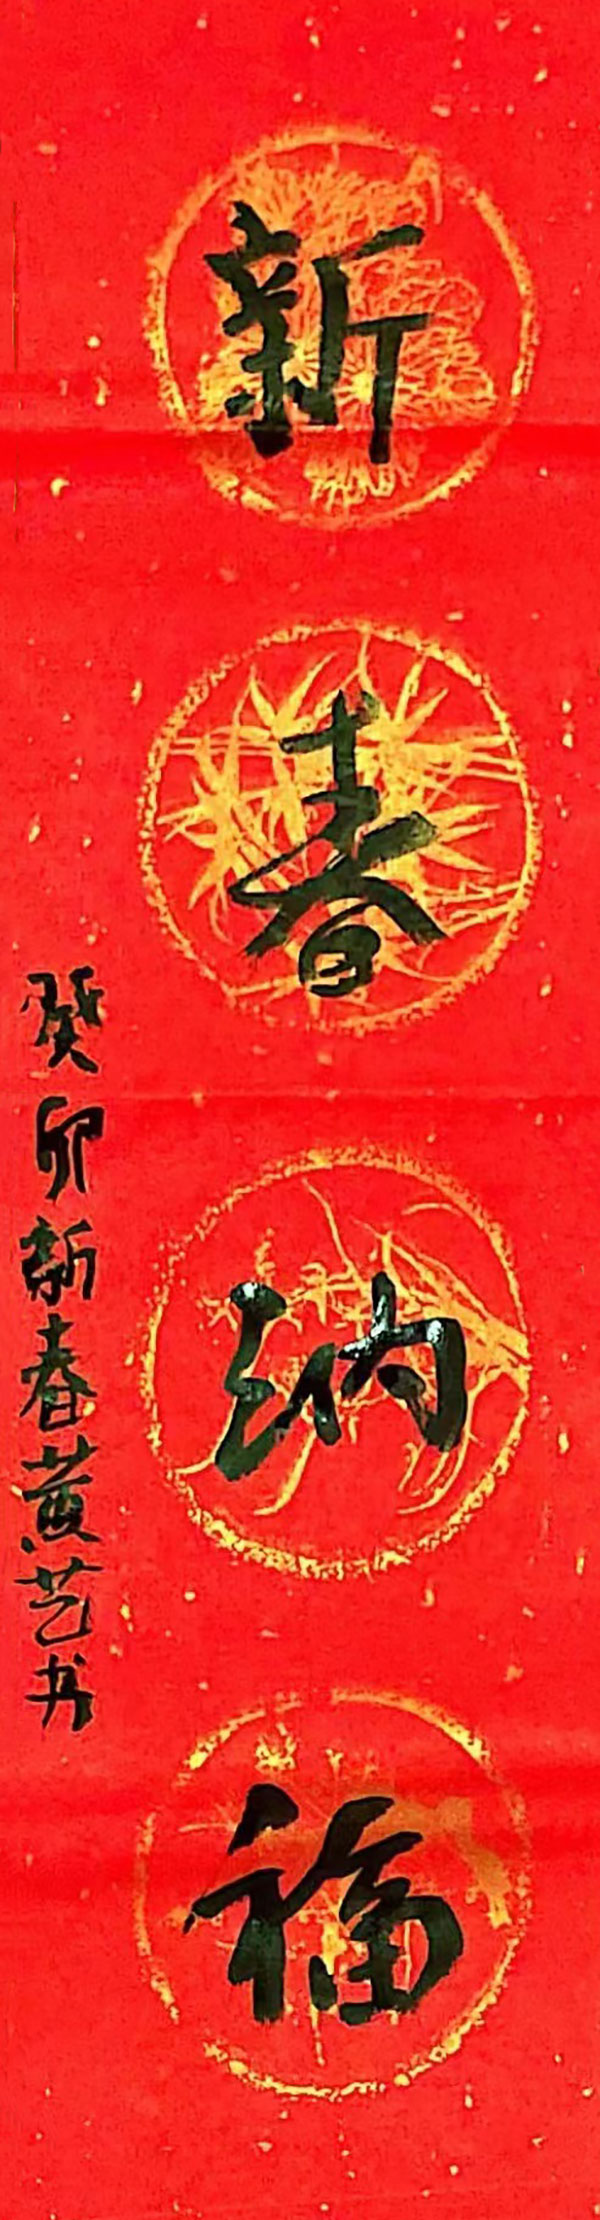 新春纳福
癸卯新春黄艺书